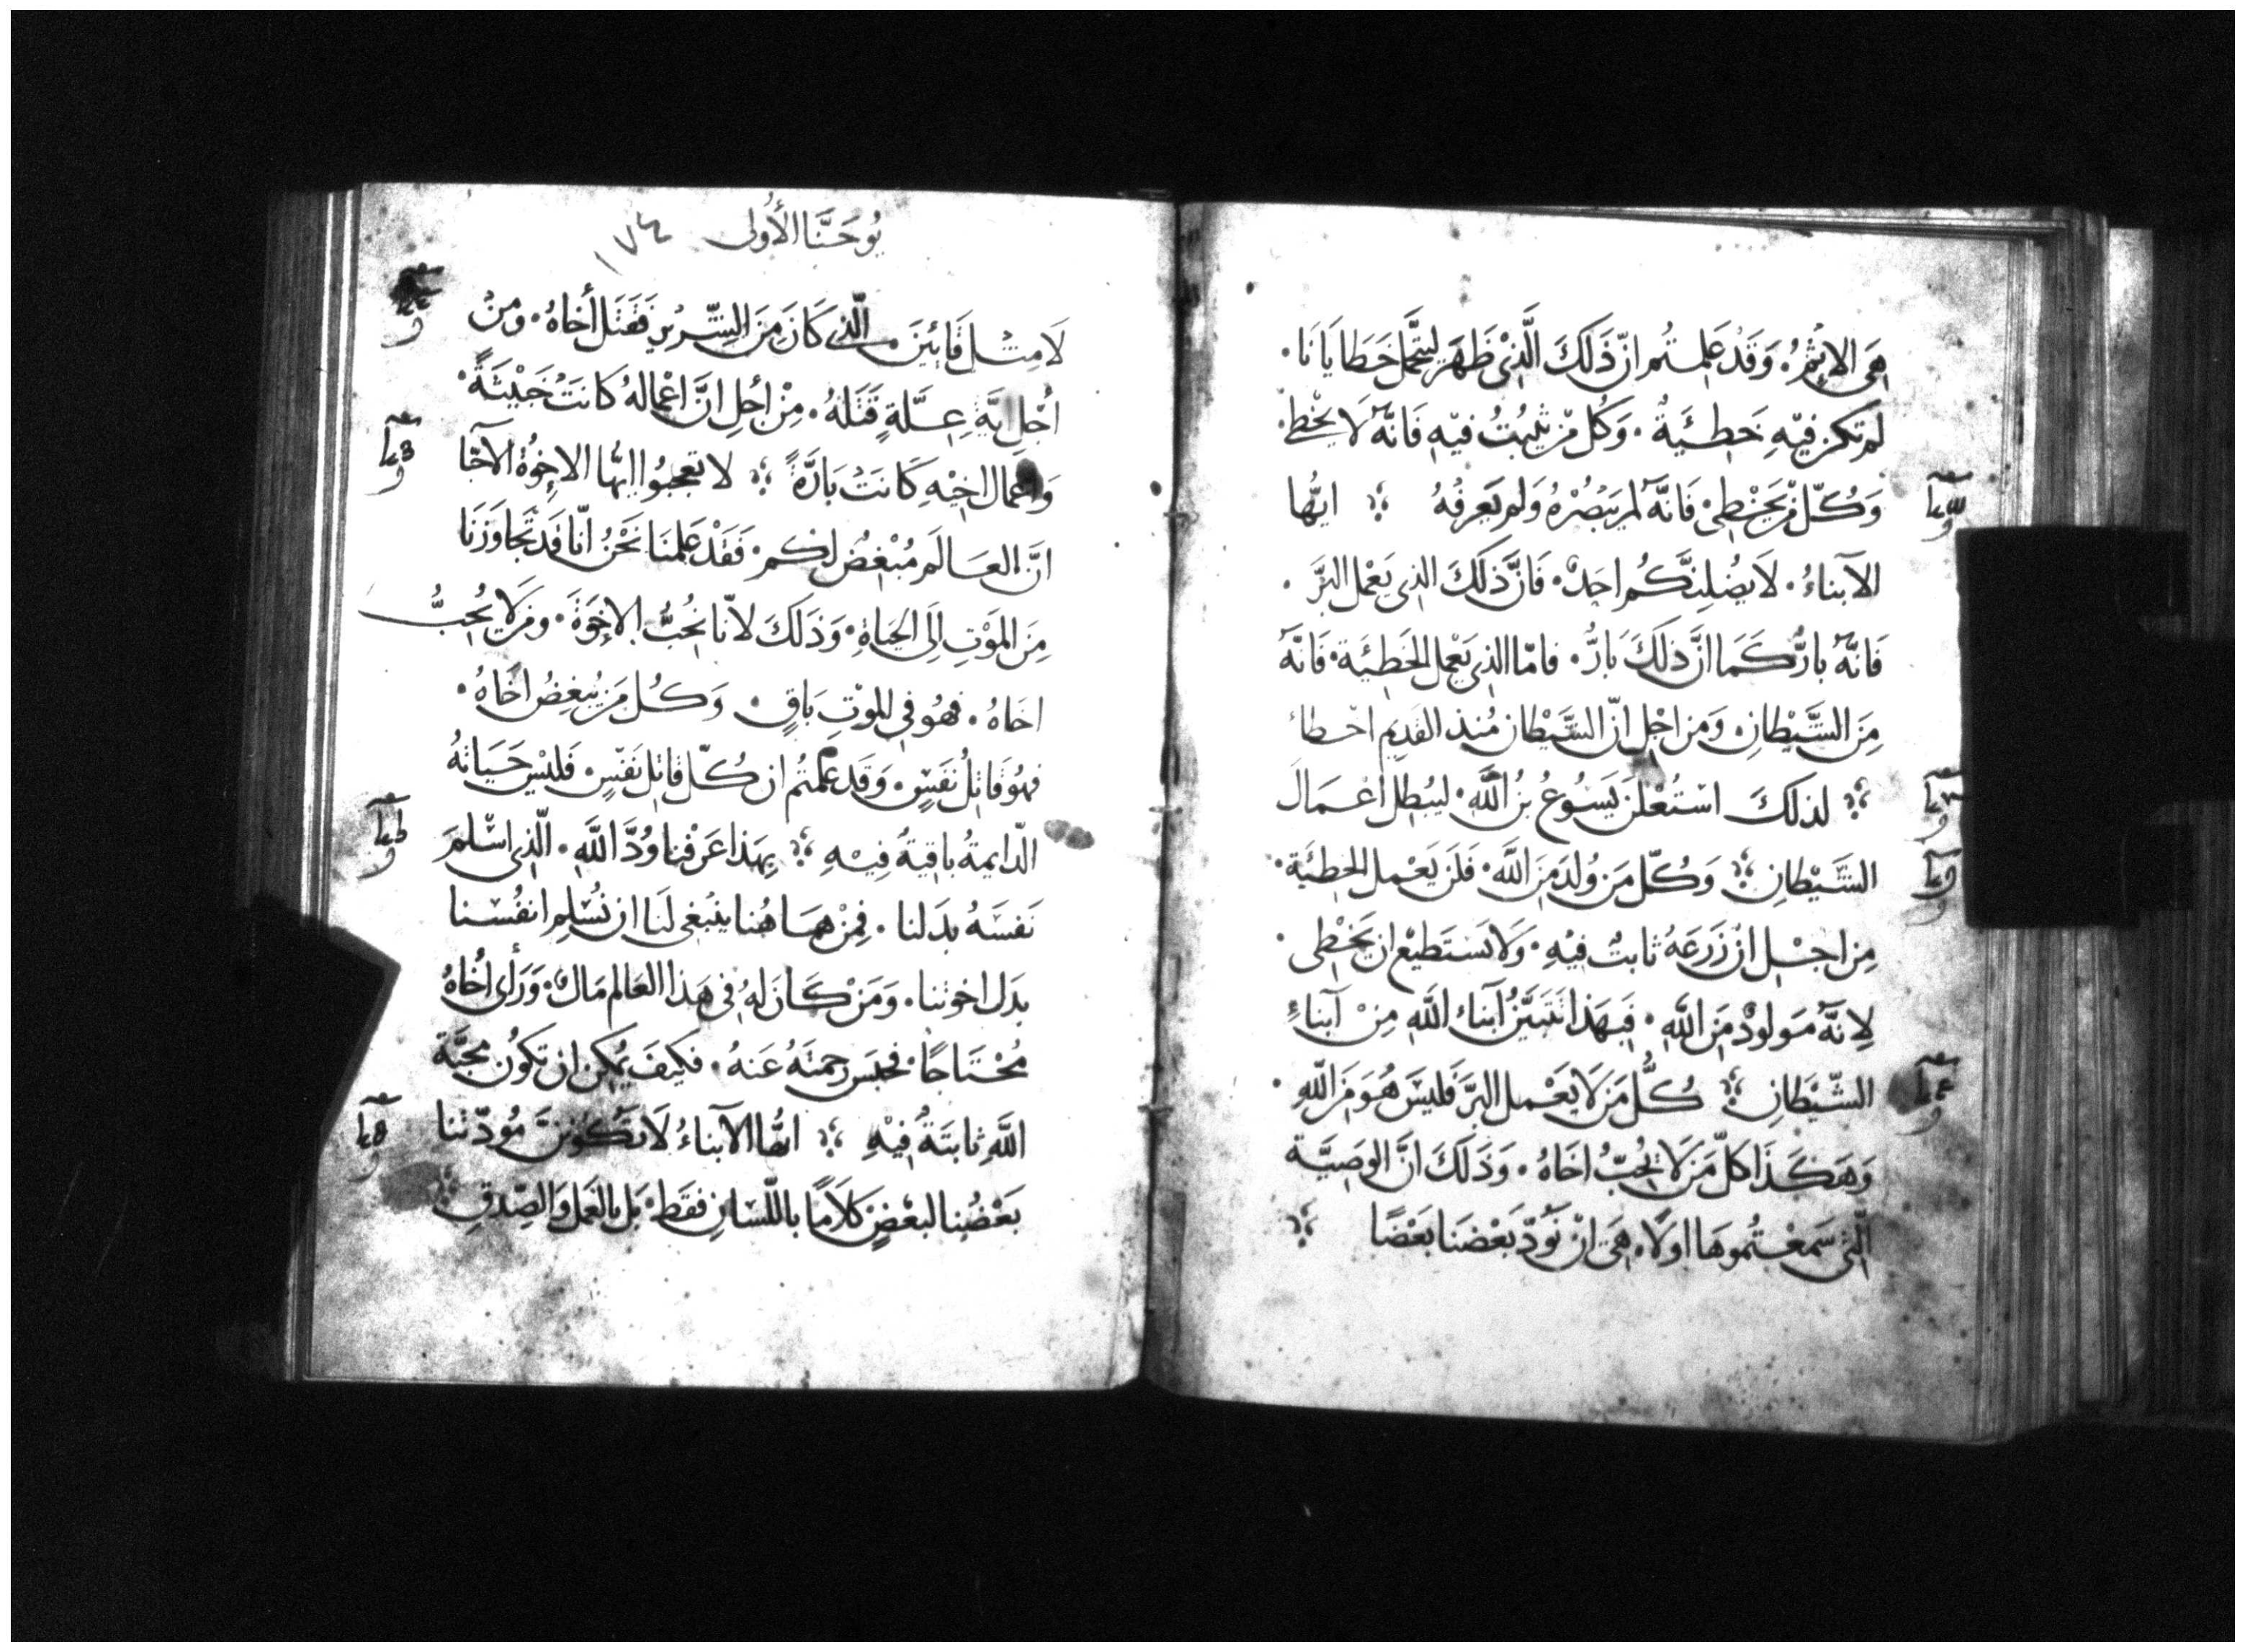 هَى الاِثْمُ. وَقَدْ عَلِمتُم انّ ذَلكَ الَّذِى ظَهَرَ ليَتحَّملَ خَطَايَانَا.
لم تكن فيْهِ خَطِئَيةٌ. وَكُل مَنْ يثْبُتُ فيْهِ فَانَّهُ لَا يخْطِى
وَكُلّ مَنْ يَخْطِى. فَانَّهُ لم يَبْصُرْهُ وَلم يَعرفْهُ ايُّها
الآبناءُ. لَا يضُلِنَّكُم احَدٌ. فَانَّ ذلكَ الذى يَعْمل البرَّ.
فَانَّهُ بارٌّ كَمَا انَّ ذلكَ بَارٌّ. فامّا الذى يَعْمل الخَطِئَية. فَانَّهُ
مِنَ الشَّيْطانِ. وَمن اجْلِ انّ الشَّيْطان مُنذ القَديم اخطاء
لذلكَ اسْتُعْلنَ يَسُوعُ بنُ اللَّهِ. ليُبْطِلَ أعْمَالَ
الشَّيْطانِ وَكُلّ مَن وُلدَ مِنَ اللَّه. فَلَن يَعْمل الخطئَية.
مِن اجْل انْ زَرعَهُ ثابتٌ فيْهِ. وَلا يَستَطيْع ان يَخْطِى.
لِانَّهُ مَولودٌ مِنَ اللَّهِ. فَبِهَذا تتَبَيَّنُ آبناء اللَّهِ مِنْ آبناءِ
الشَّيْطَانِ كُلُّ مَن لَا يَعْمل البرَّ فَليسَ هُوَ مِنَ اللَّهِ.
وَهَكَذَا كلّ مَن لَا يُحبُّ اخَاهُ. وَذَلكَ انَّ الوَصِيَّة
الّتى سَمعْتُموهَا اولًا. هَىَ انْ نَودّ بَعْضنَا بَعْضًا
يُوحَنَّا الأُولى ١٧٤
لَا مِثل قَائينَ. الّذى كَانَ مِنَ الشّرّيْرِ فَقَتَل أخاهُ. ومنْ
أجْلِ ايَّة عِلَّةٍ قَتَلهُ. مِنْ أجْلِ انَّ اعْمالهُ كانَتْ خَبْيثَةً.
وَاعْمال اخيْهِ كَانَتْ بَارَّةً لا تعجبُوا ايُّها الاخوُة الآحّبا
انَّ العَالَم مُبْغِضٌ لكم. فَقَدْ عَلمنَا نَحْنُ انّا قَد تَجاوَزنَا
مِنَ المَوْتِ الَى الحيَاةِ. وَذَلكَ لانّا نُحبُّ الاخوَةَ. ومَن لَا يُحِبُّ
اخَاهُ. فهُو فى الموْتِ بَاقٍ. وَكُل مَن يُبغضُ اخَاهُ.
فهُو قَاتِلُ نَفَسٍ. وَقَد عَلمتُم ان كُلّ قاتِل نَفَسٍ. فَليْسَ حَيَاتهُ
الدّايمةُ باقيَةٌ فِيْهِ بِهَذا عَرَفْنا وُدَّ اللَّهِ. الّذى اسْلمَ
نَفسَهُ بدَلنا. فِمنْ هَاهُنا ينبغى لَنا ان نُسْلِم انفُسْنا
بدَل اخوتنا. وَمَنْ كَانَ لهُ فى هَذا العَالم مَالٌ. وَرَأى أخَاهُ
مُحْتَاجًا. فحَبسَ رحمتَهُ عَنهُ. فكيفَ يُمكن ان تكوُن محبَّة
اللَّهِ ثابتَةٌ فيْهِ ايُّها الآبناءُ لَا تَكُونَنَّ مُودّتنا
بَعْضُنا لبعْضٍ كَلَامًا باللّسَانِ فقَط. بَل بالعَملِ وَالصِّدقِ